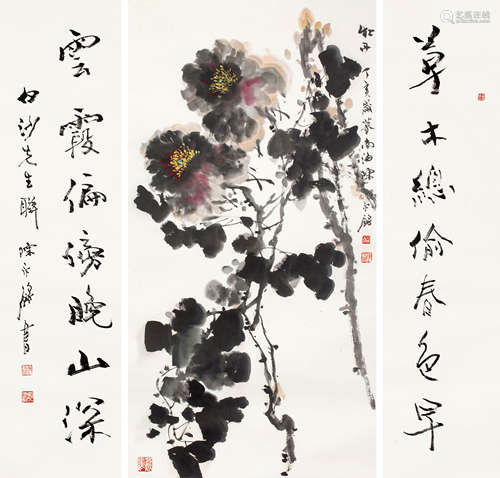 艺狐在线
草木總偷春色早
牡丹 丁亥歲暮南海陳永鏘
雲霞偏傍晚山深
白沙先生聯 陳永鏘書